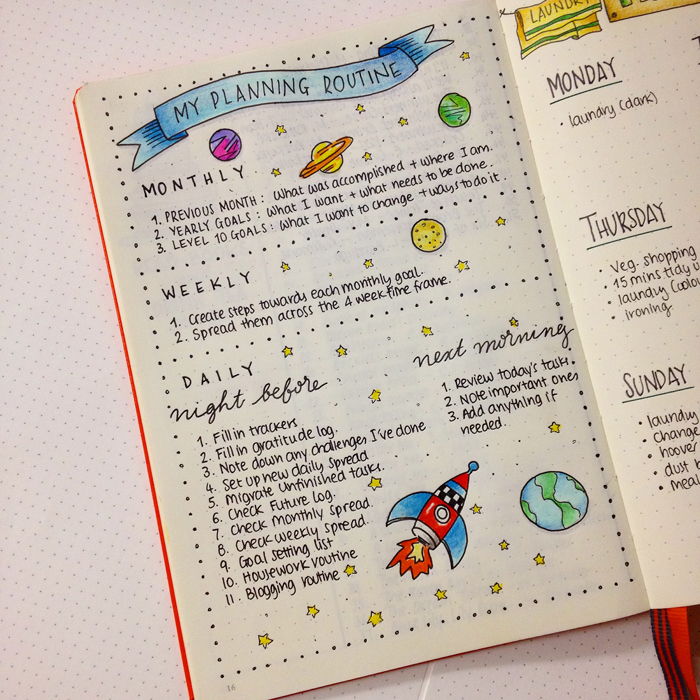 MY PLANNING ROUTINE
MONTHLY
1. PREVIOUS MONTH: What was accomplished + where I am.
2. YEARLY GOALS: What I want + what needs to be done.
3. LEVEL 10 GOALS: What I want to change + ways to do it
WEEKLY
1. Create steps towards each monthly goal.
2. Spread them across the 4 week time frame.
DAILY
night before
1. Fill in trackers
2. Fill in gratitude log.
3. Note down any challenges I've done
4. Set up new daily spread
5. Migrate unfinished tasks.
6. Check Future Log.
7. Check Monthly spread.
8. Check weekly spread.
9. Goal setting list
10. Housework routine
11. Blogging routine
next morning
1. Review today's tasks.
2. Note important ones
3. Add anything if
needed.
16
LAUNDRY
MONDAY
• laundry (dark)
THURSDAY
• Veg. shopping
• 15 mins tidy
• laundry (colo
• ironing
SUNDAY
• laundry
• change
• hoover
• dust
• meal